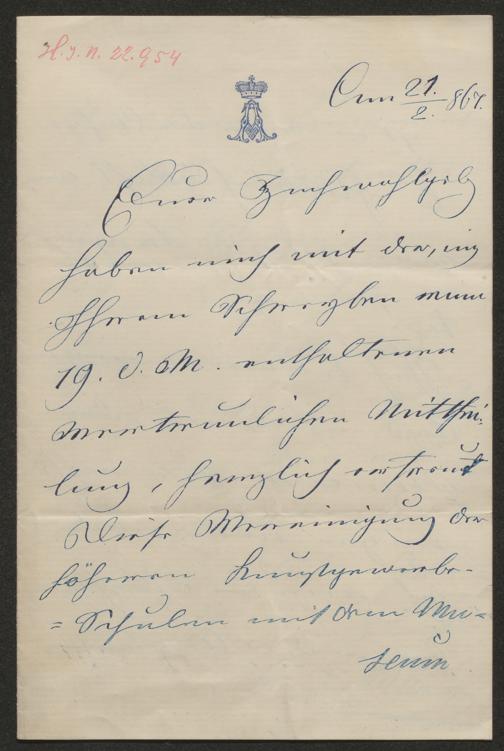 H. I. N. 22.954
Am 21./2. 867.
Euer Hochwohlgeb
haben mich mit der, in
Ihrem Schreyben vom
19. d. M. enthaltenen
vertraulichen Mitthei-
lung, herzlich erfreut
Diese Vereinigung der
höheren Kunstgewerbe-
=Schulen mit dem Mu=
seum